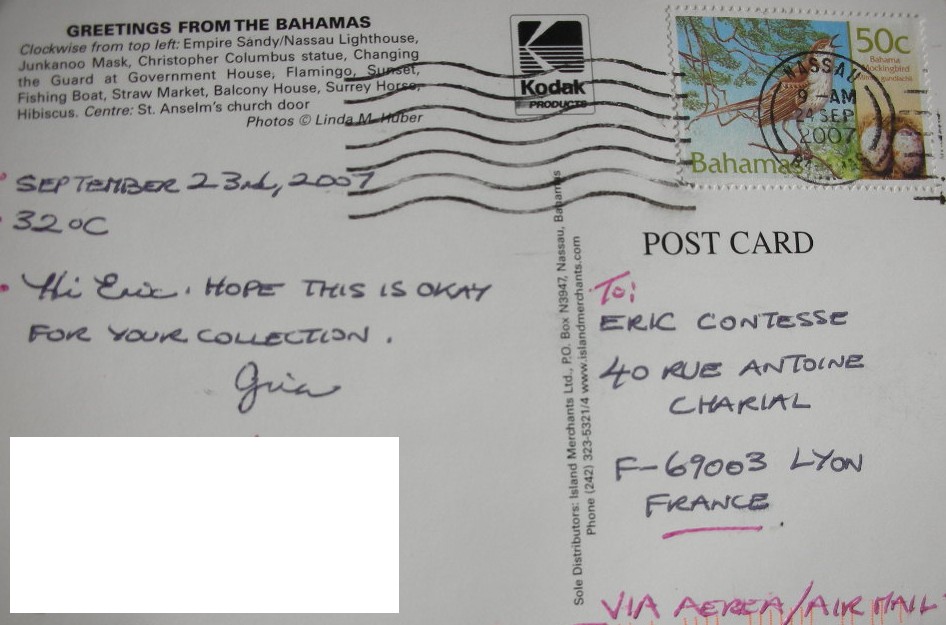 GREETINGS FROM THE BAHAMAS
Clockwise from top left: Empire Sandy/Nassau Lighthouse,
Junkanoo Mask, Christopher Columbus statue, Changing
the Guard at Government House, Flamingo, Sunset,
Fishing Boat, Straw Market, Balcony House, Surrey Horse,
Hibiscus. Centre: St. Anselm's church door
Photos © Linda M. Huber
Kodak
PRODUCTS
50c
Bahama
Mockingbird
Bahamas
NASSAU
9-AM
24 SEP
2007
SEPTEMBER 23rd, 2007
32°C
Hi Eric. HOPE THIS IS OKAY
FOR YOUR COLLECTION.
Sole Distributors: Island Merchants Ltd., P.O. Box N3947, Nassau, Bahamas
Phone (242) 323-5321/4 www.islandmerchants.com
POST CARD
To:
ERIC CONTESSE
40 RUE ANTOINE
CHARIAL
F-69003 LYON
FRANCE
VIA AEREA/AIR MAIL